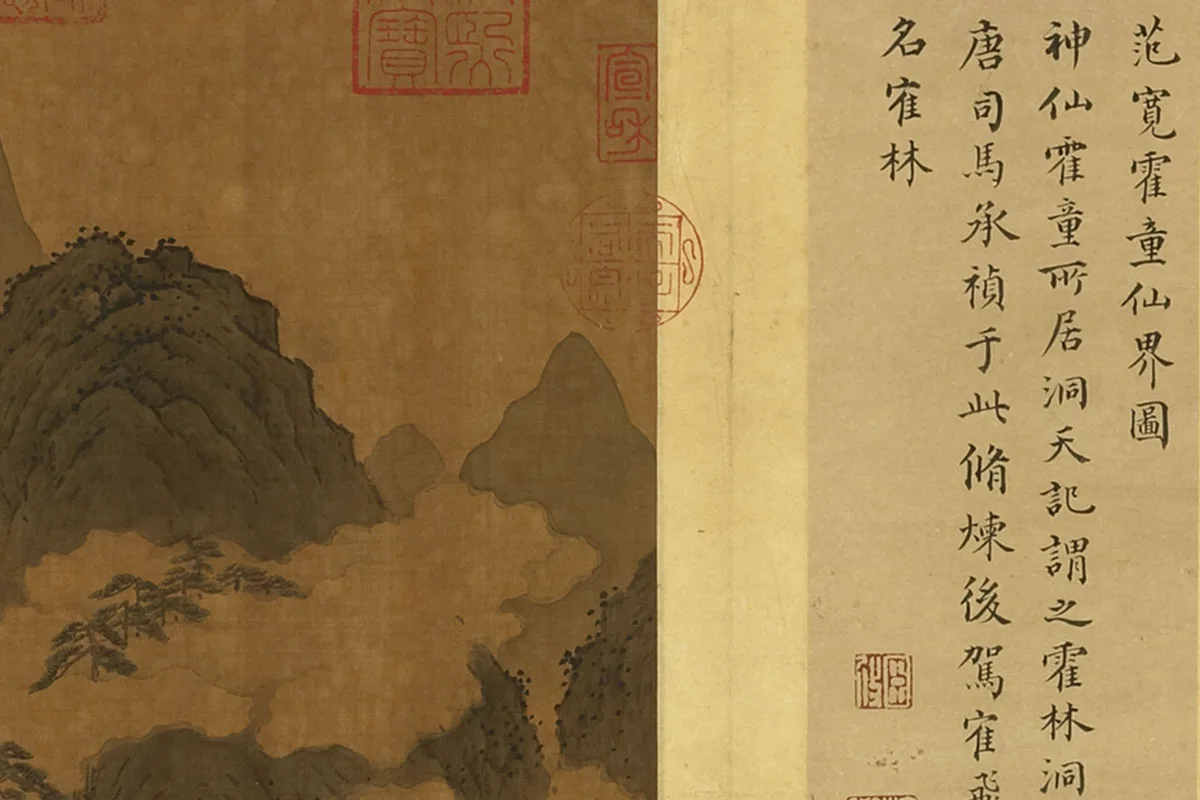 范寬霍童仙界圖
神仙霍童所居洞天記謂之霍林洞
唐司馬承禎于此脩煉後駕寉飛
名寉林
宣和